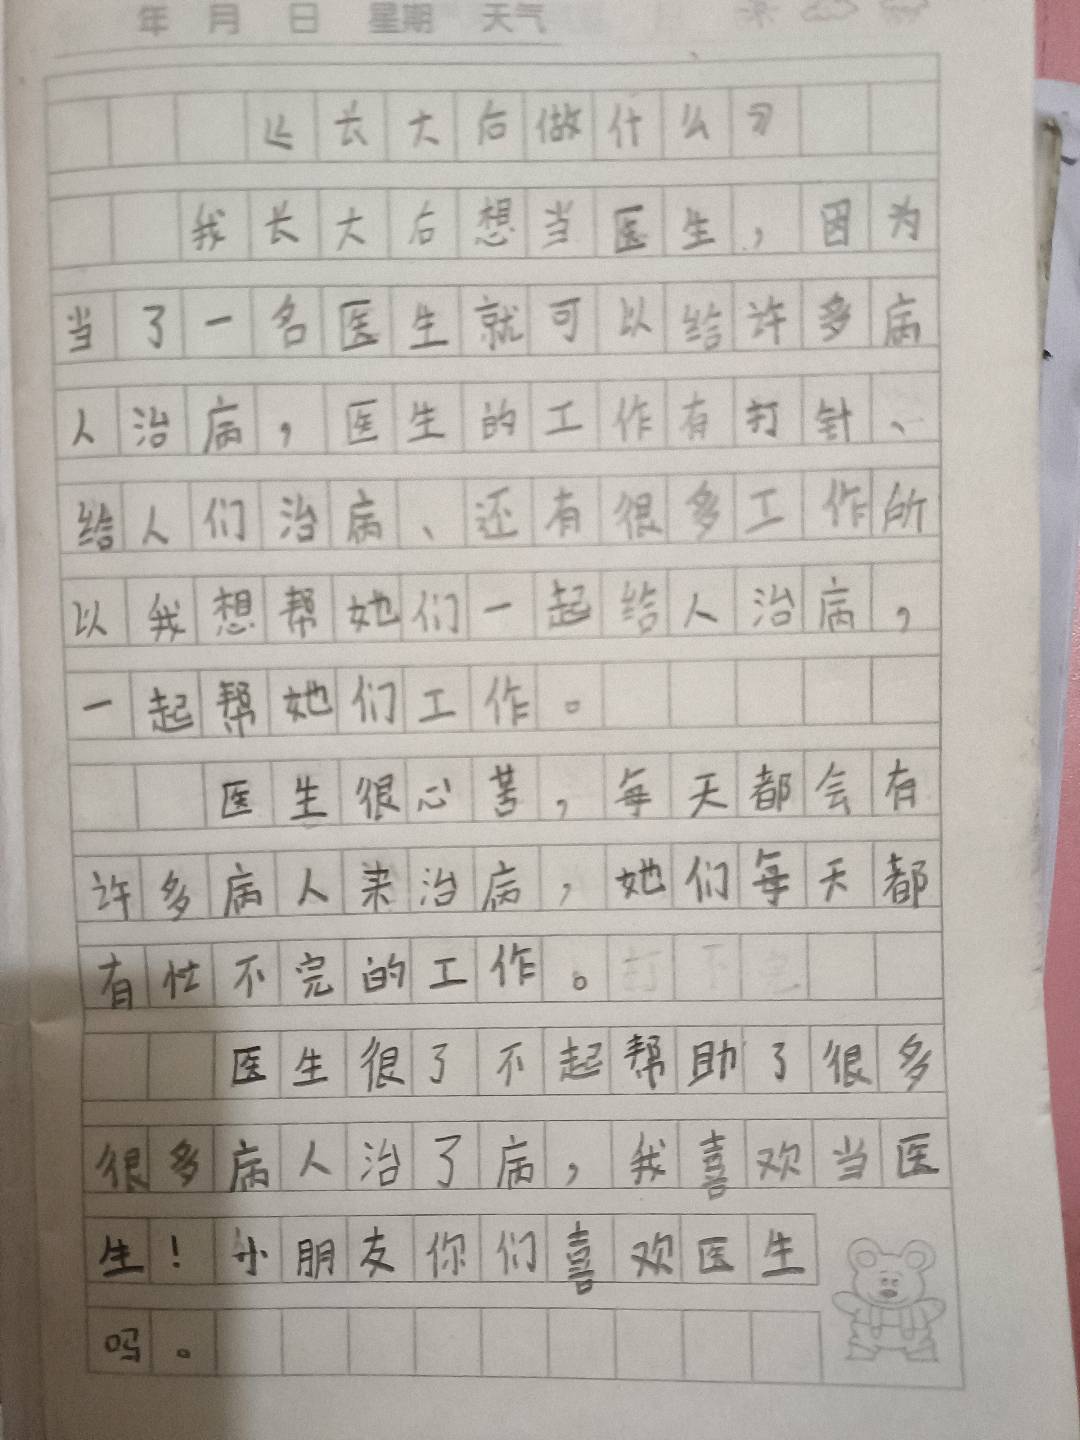 年 月 日 星期 天气
长大后做什么
我长大后想当医生，因为
当了一名医生就可以给许多病
人治病，医生的工作有打针、
给人们治病、还有很多工作所
以我想帮她们一起给人治病，
一起帮她们工作。
医生很心苦，每天都会有
许多病人来治病，她们每天都
有忙不完的工作。
医生很了不起帮助了很多
很多病人治了病，我喜欢当医
生！小朋友你们喜欢医生
吗。